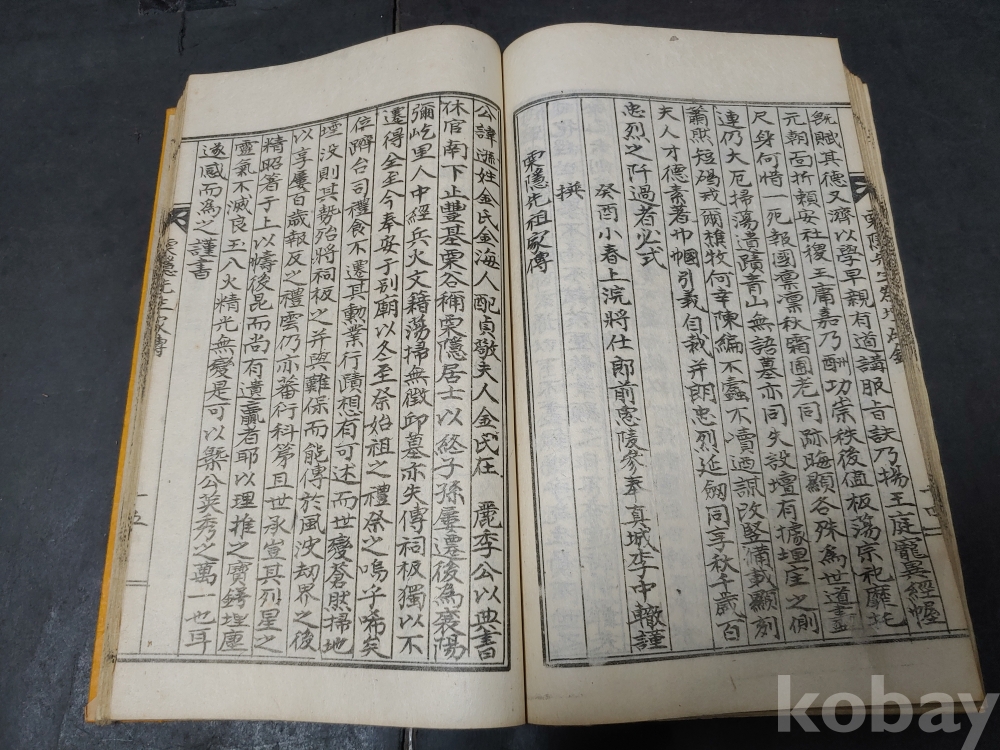 旣賦其德又濟以學早親有道講服旨訣乃揚王庭寵異經幄
元朝面折賴安社稷王庸嘉乃酬功崇秩後値板蕩宗祀靡托
尺身何惜一死報國凜凜秋霜圃老同跡晦顯谷殊爲世道
連仍大厄掃蕩遺蹟靑山無語墓亦同失設壇有據壇厓之側
肅然短碣戎爾樵牧何幸陳編不蠹不瀆迺謀改竪備載顯刻
夫人才德素著巾幗引義自裁幷朗忠烈延劒同孚秋千歲百
忠烈之阡過者必式
癸酉小春上浣將仕郞前惠陵參奉眞城李中轍謹
撰
栗隱先祖家傳
公諱遜姓金氏金海人配貞敬夫人金氏仕 麗季公以典書
休官南下止豐基栗谷稱栗隱居士以終子孫屢遷後爲襄陽
彌屹里人中經兵火文籍蕩掃無徵卽墓亦失傳祠板獨以不
遷得全至今奉安于別廟以冬至祭始祖之禮祭之嗚乎唏矣
位躋台司禮食不遷其勳業行蹟想有可述而世變蒼然掃地
壇沒則其勢殆將祠板之幷與難保而能傳於風波劫界之後
以享屢百歲報反之禮雲仍亦蕃衍科第且世承豈其烈星之
精昭著于上以幬後昆而尚有遺羸者耶以理推之寶鍔埋塵
靈氣不滅良玉入火精光無變是可以槩公英秀之萬一也耳
遂感而爲之謹書
栗隱先生家傳
十五
十四
kobay